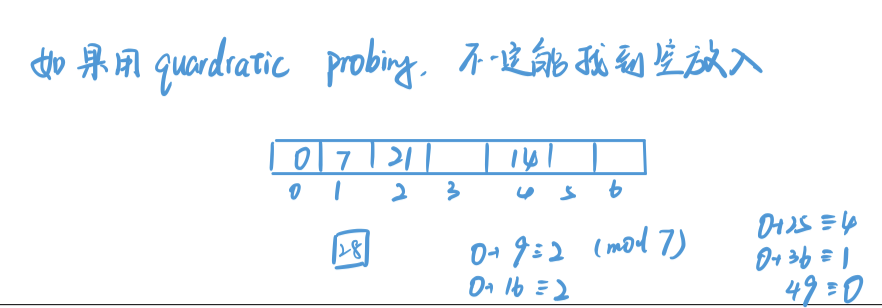 如果用 quardratic probing. 不一定能找到空放入
0 7 21 14
0 1 2 3 4 5 6
28
0+9≡2 (mod 7)
0+16≡2
0+25≡4
0+36≡1
49≡0